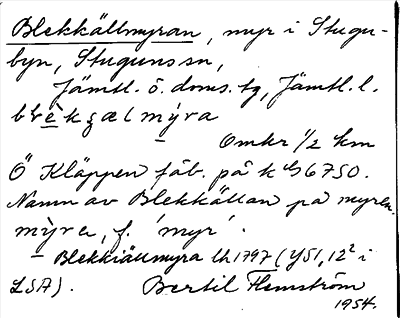 Blekkällmyran, myr i Stugu-
byn, Stuguns sn,
Jämtl. ö. doms. tg, Jämtl. l.
mýra
Omkr 1/2 km
Ö Kläppen fäb. på k 6750.
Namn av Blekkällan på myren.
mỳra, f. 'myr'.
– Blekkiällmyra Lh 1797 (Y51, 12² i
LSA). Bertil Flemström
1954.